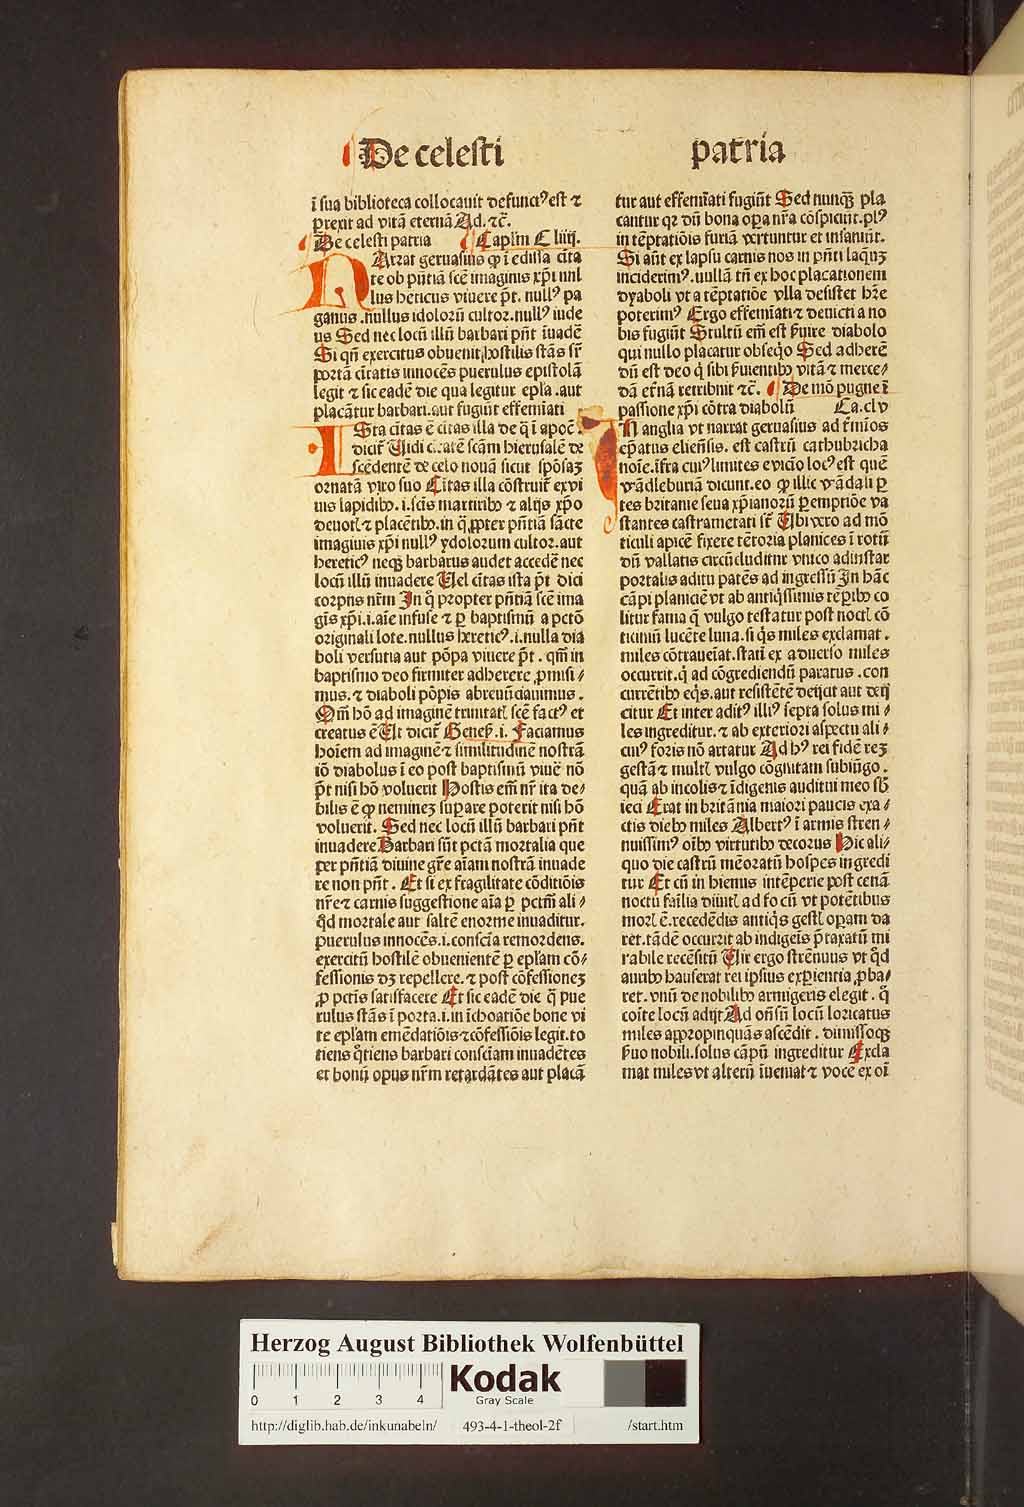 De celesti patria
ī sua biblioteca collocauit defunctꝰ est ⁊
ꝑrexit ad vitā eternā Ad. ⁊c̄.
De celesti patria Caplm̄ C liiij.
NArrat geruasius ꝙ ī edissa cita
te ob pn̄tiā scē imaginis xp̄i nul
lus heticus viuere pt̄. nullꝰ pa
ganus. nullus idolorū cultor. nullꝰ iude
us Sed nec locū illū barbari pn̄t īuadē
Si qn̄ exercitus obuenit hostilis stās sr̄
portā ciuitatis innocēs puerulus epistolā
legit ⁊ sic eadē die qua legitur epl̄a. aut
placātur barbari. aut fugiūt effemīati
ISta citas ē citas illa de q̄ ī apoc̄.
dicit᷑ Uidi c..atē scām hierusalē de
scēdentē de celo nouā sicut spōsaꝫ
ornatā viro suo Citas illa cōstruit᷑ ex vi
uis lapidibꝫ. i. scīs martiribꝫ ⁊ alijs xp̄o
deuotꝭ ⁊ placētibꝫ. in q̄ ꝓpter pn̄tiā sācte
imaginis xp̄i nullꝰ ydolorum cultor. aut
hereticꝰ neqꝫ barbarus audet accedē nec
locū illū inuadere Uel citas ista pt̄ dici
corpus nr̄m In q̊ propter pn̄tiā scē ima
gīs xp̄i. i. aīe infuse ⁊ ꝑ baptismū a pctō
originali lote. nullus hereticꝰ. i. nulla dia
boli versutia aut pōpa viuere pt̄. qm̄ in
baptismo deo firmiter adherere ꝓmisi⸗
mus. ⁊ diaboli pōpis abrenūciauimus.
Qm̄ hō ad imaginē trinitatꝭ scē factꝰ et
creatus ē Ut dicit᷑ Geneß. i. Faciamus
hoīem ad imaginē ⁊ similitudinē nostrā
iō diabolus ī eo post baptismū viuē nō
pt̄ nisi hō voluerit Hostis em̄ nr̄ ita de⸗
bilis ē ꝙ neminez suꝑare poterit nisi hō
voluerit. Sed nec locū illū barbari pn̄t
inuadere Barbari sūt pctā mortalia que
per pn̄tiā diuine gr̄e aīam nostrā inuade
re non pn̄t. Et si ex fragilitate cōditiōis
nr̄e ⁊ carnis suggestione aīa ꝑ pctm̄ ali⸗
q̊d mortale aut saltē enorme inuaditur.
puerulus innocēs. i. conscīa remordens.
exercitū hostilē obuenientē ꝑ epl̄am cō⸗
fessionis dꝫ repellere. ⁊ post cōfessionez
ꝓ pctīs satisfacere Et sic eadē die q̄ pue
rulus stās ī porta. i. in īchoatiōe bone vi
te epl̄am emēdatiōis ⁊ cōfessiōis legit. to
tiens q̊tiens barbari consciam inuadētes
et bonū opus nr̄m retardātes aut placā
tur aut effemīati fugiūt Sed nunqꝫ pla
cantur qꝛ dū bona oꝑa nr̄a cōspiciūt. plꝰ
in tēptatiōis furiā vertuntur et insaniūt.
Si aūt ex lapsu carnis nos in pn̄ti laqūz
inciderimꝰ. nullā tn̄ ex hoc placationem
dyaboli vt a tēptatiōe vlla desistet hr̄e
poterimꝰ Ergo effemīati ⁊ deuicti a no
bis fugiūt Stultū em̄ est ẜuire diabolo
qui nullo placatur obseq̇o Sed adherē
dū est deo q̇ sibi ẜuientibꝫ vitā ⁊ merce⸗
dā et̄nā retribuit ⁊c̄. De mō pugne ī
passione xp̄i cōtra diabolū Ca. cl v
IN anglia vt narrat geruasius ad t̄mīos
ep̄atus eliensis. est castrū cathubricha
noīe. īfra cuiꝰ limites e vicīo locꝰ est quē
wādleburiā dicunt. eo ꝙ illic wādali ꝑ
tes britanie seua xp̄ianorū ꝑemptiōe va
stantes castrametati sr̄t Ubi vero ad mō
ticuli apicē fixere tētoria planices ī rotū
dū vallatis circūcluditur vnico adinstar
portalis aditu patēs ad ingressū In hāc
cāpi planiciē vt ab antiq̇ssimis tēꝑibꝫ co
litur fama q̄ vulgo testatur post noctꝭ cō
ticiniū lucēte luna. si q̇s miles exclamat.
miles cōtraueīat. statī ex aduerso miles
occurrit. q̇ ad cōgrediendū paratus. con
currētibꝫ eq̇s. aut resistētē deijcit aut deij
citur Et inter aditꝰ illiꝰ septa solus mi⸗
les ingreditur. ⁊ ab exteriori aspectu ali⸗
cuiꝰ foris nō artatur Ad hꝰ rei fidē reꝫ
gestā ⁊ multꝭ vulgo cōgnitam subiūgo.
quā ab incolis ⁊ īdigenis auditui meo sb̄
ieci Erat in britānia maiori paucis exa⸗
ctis diebꝫ miles Albertꝰ ī armis stren⸗
nuissimꝰ oībꝫ virtutibꝫ decorus Hic ali⸗
quo die castrū mēoratū hospes ingredi
tur Et cū in hiemis intēperie post cenā
noctu faīlia diuitꝭ ad focū vt potētibus
morꝭ ē. recedēdis antiq̇s gestꝭ oꝑam da
ret. tādē occurrit ab indigeīs p̄taxatū mi
rabile recēsitū Uir ergo strēnuus vt q̊d
auribꝫ hauserat rei ipsius exꝑientia ꝓba⸗
ret. vnū de nobilibꝫ armigeris elegit. q̊
coīte locū adijt Ad on̄sū locū loricatus
miles appropinquās ascēdit. dimissoqꝫ
ẜuo nobili. solus cāpū ingreditur Excla
mat miles vt alterū īueniat ⁊ vocē ex oī
Herzog August Bibliothek Wolfenbüttel
0 1 2 3 4
Kodak
Gray Scale
http://diglib.hab.de/inkunabeln/ 493-4-1-theol-2f /start.htm